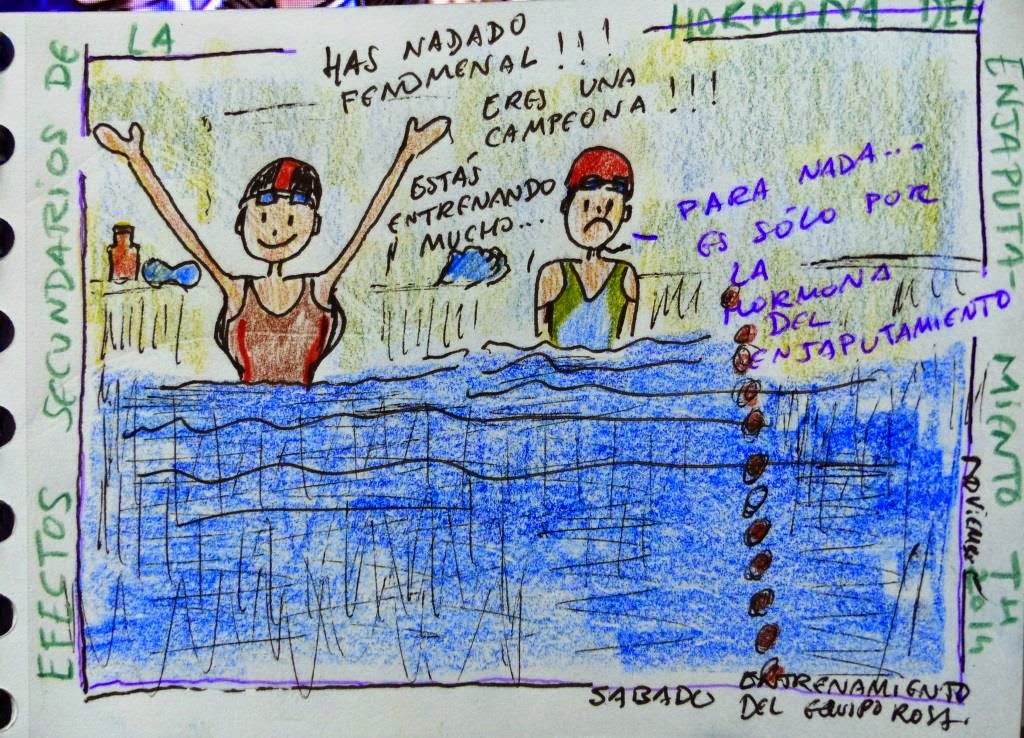 EFECTOS SECUNDARIOS DE
LA
HORMONA DEL
ENJAPUTA-
MIENTO TM
HAS NADADO
FENOMENAL!!!
ERES UNA
CAMPEONA!!!
ESTÁS
ENTRENANDO
MUCHO...
PARA NADA...
ES SÓLO POR
LA
HORMONA
DEL
ENJAPUTAMIENTO
2014
SABADO
ENTRENAMIENTO
DEL EQUIPO ROSA.